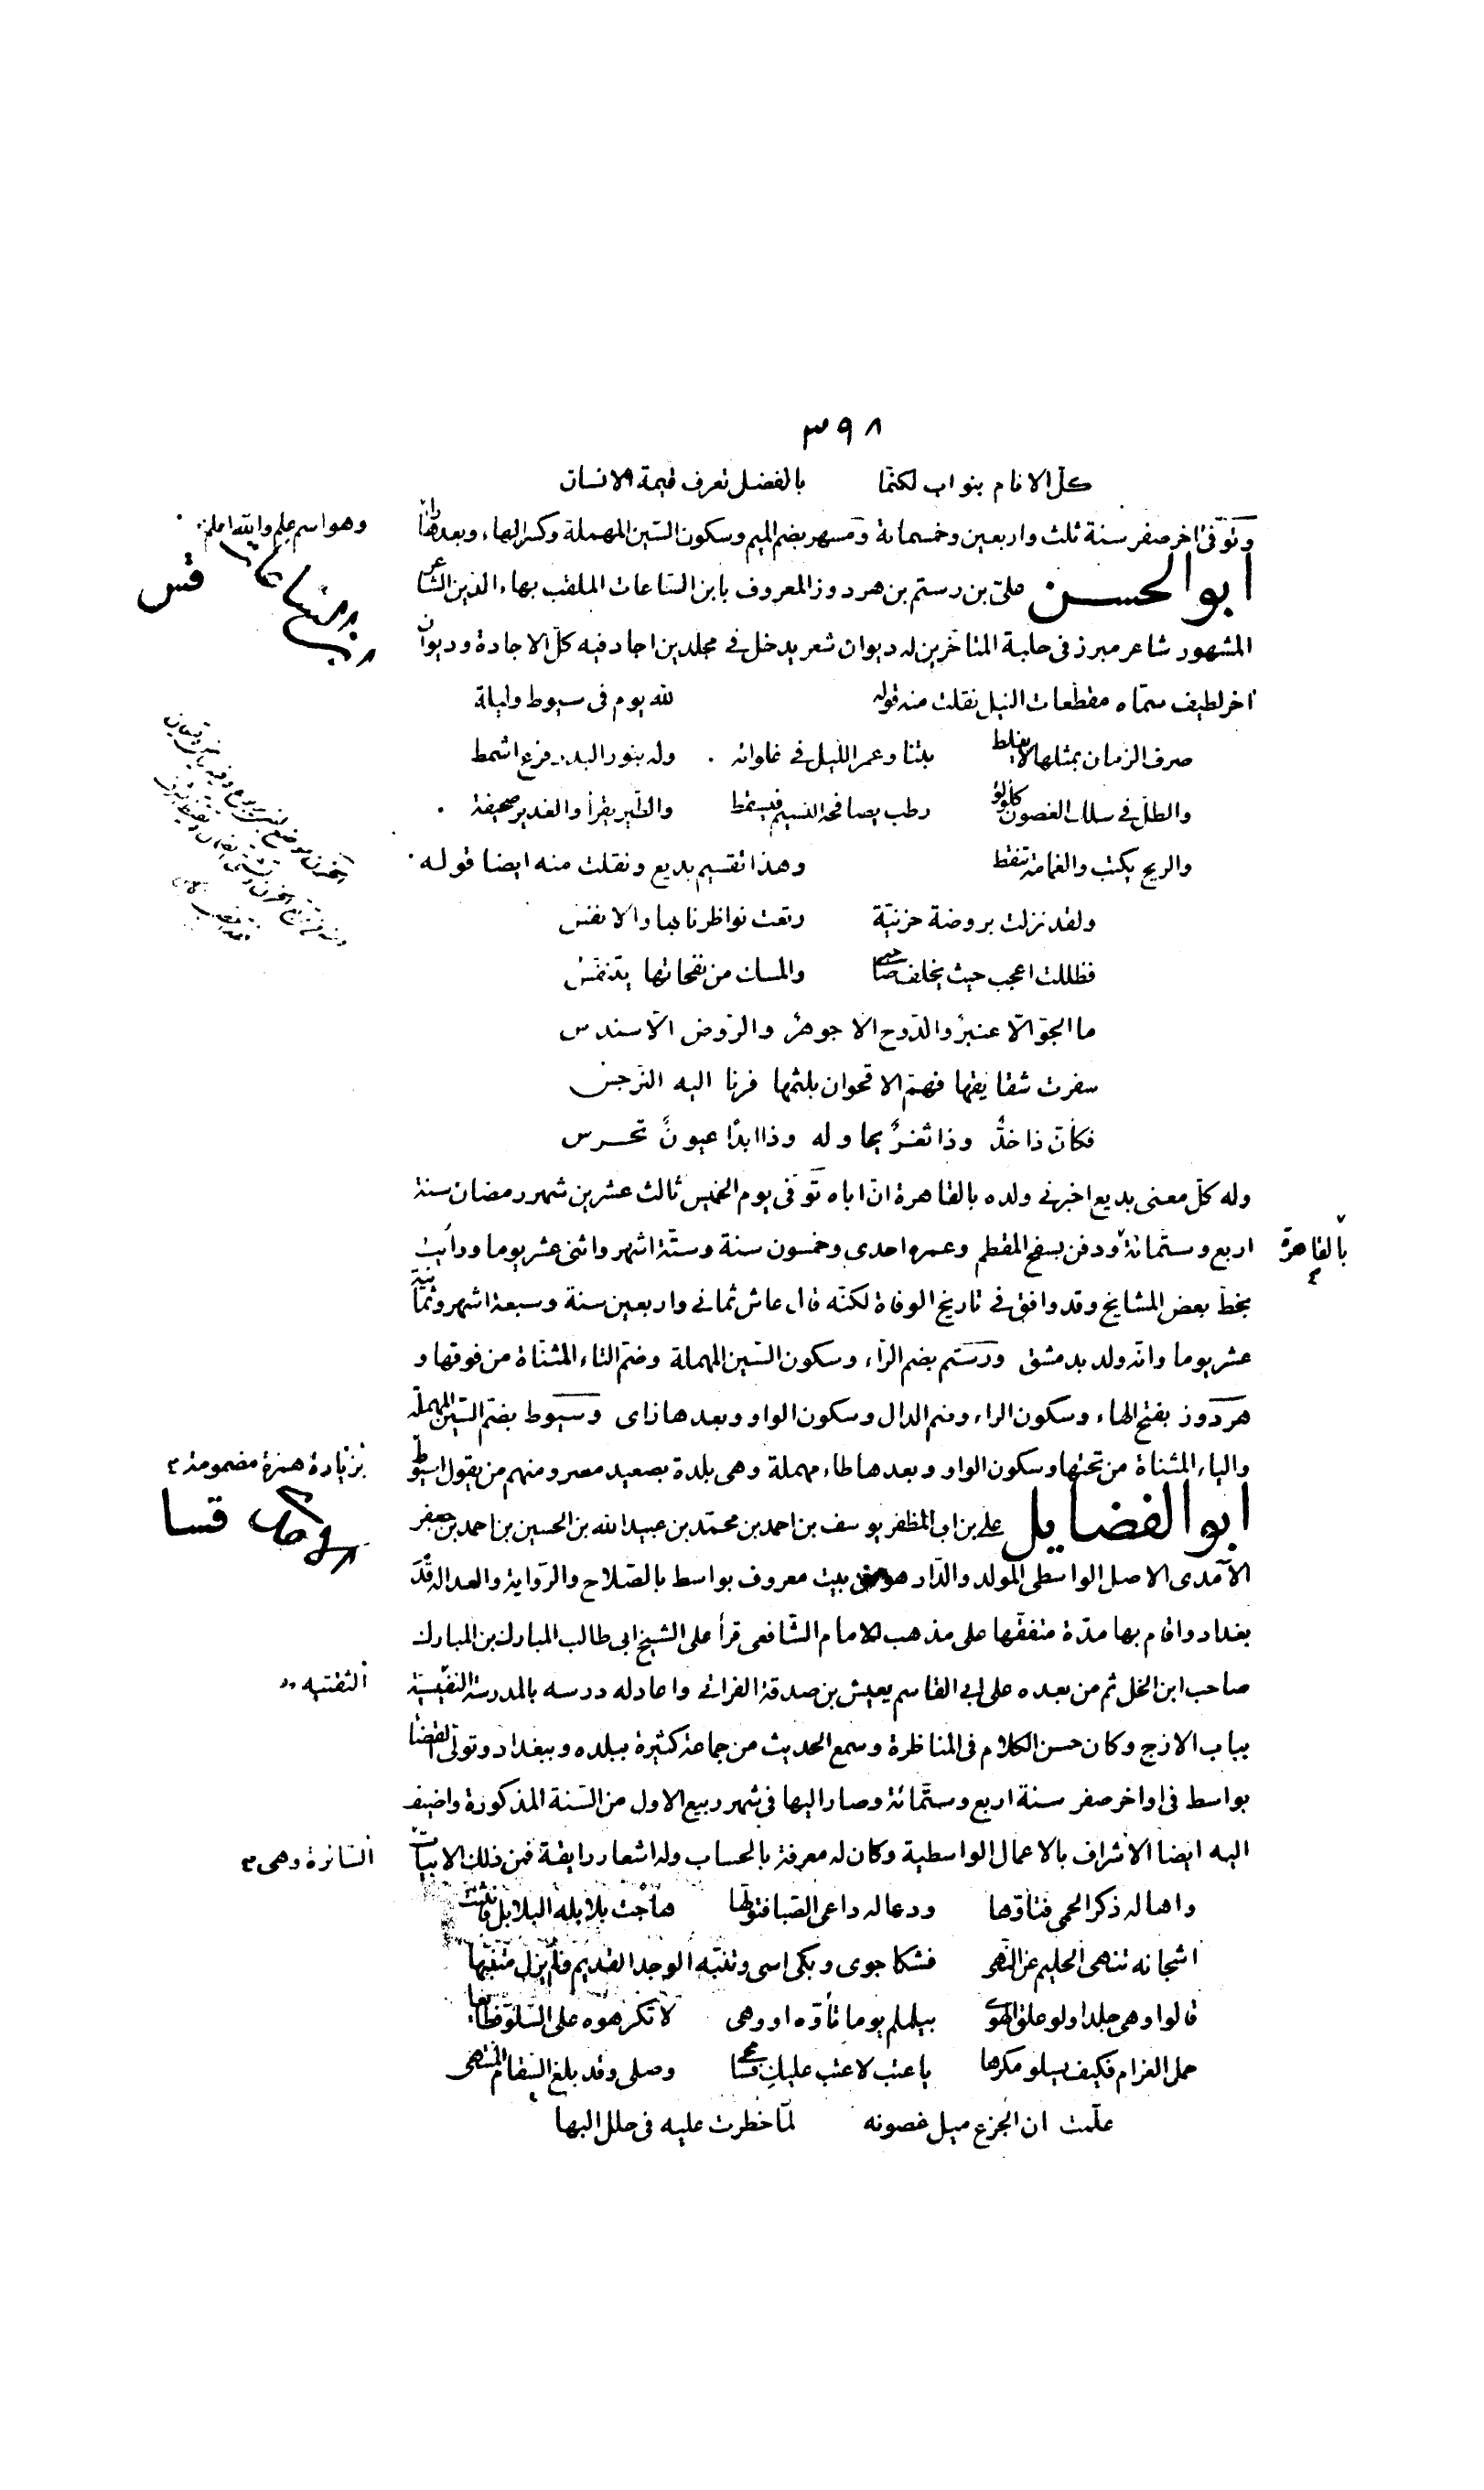 ٣٩٨
كلّ الانام بنو اب لكنّما بالفضل تعرف قيمة الانسان
وتوّفى اخر صفر سنة ثلث واربعين وخمسمائة ومسهر بضم الميم وسكون السّين المهملة وكسر الهاء وبعدها راء
وهو اسم علم والله اعلم
ابو الحسن علىّ بن رستم بن هردوز المعروف بابن السّاعات الملقب بهاء الدين الشّاعر
قس
المشهور شاعر مبرز فى حلبة المتاخّرين له ديوان شعر يدخل فى مجلدين اجاد فيه كلّ الاجادة وديوان
اخر لطيف سمّاه مقطّعات النيل نقلت منه قوله لله يوم فى سيوط وليلة
صرف الزمان بمثلها لا يغلط بتنا وعمر اللّيل فى غلوائه وله بنور البدر فرع اشمط
والطلّ فى سلك الغصون كلؤلؤ رطب يصافحه النسيم فيسقط والطّير يقرأ والغدير صحيفة
والريح يكتب والغمامة تنقط وهذا تقسيم بديع ونقلت منه ايضا قوله
ولقد نزلت بروضة حزنيّة رتعت نواظرنا بها والانفس
فظللت اعجب حيث يحلف صاحبى والمسك من نفحاتها يتنفّس
ما الجوّ الّا عنبرٌ والدّوح الا جوهرٌ والرّوض الّا سندس
سفرت شقايقها فهمّ الاقحوان بلثمها فرنا اليه النرجس
فكأنّ ذا خدٌّ وذا ثغرٌ يحاوله وذا ابدًا عيونٌ تحرس
وله كلّ معنى بديع اخبرنى ولده بالقاهرة انّ اباه توّفى يوم الخميس ثالث عشرين شهر رمضان سنة
اربع وستّمائة ودفن بسفح المقطم وعمره احدى وخمسون سنة وستّة اشهر واثنى عشر يوما ورأيت
بالقاهرة
بخطّ بعض المشايخ وقد وافق فى تاريخ الوفاة لكنّه قال عاش ثمانى واربعين سنة وسبعة اشهر وثمانية
عشر يوما وانّه ولد بدمشق ورستم بضم الرّاء وسكون السّين المهملة وضمّ التاء المثنّاة من فوقها و
هردوز بفتح الهاء وسكون الراء وضم الدال وسكون الواو وبعدها زاى وسيوط بضمّ السّين المهملة
والياء المثناة من تحتها وسكون الواو وبعدها طاء مهملة وهى بلدة بصعيد مصر ومنهم من يقول اسيوط
بزيادة همزة مضمومة
ابو الفضايل على بن ابى المظفر يوسف بن احمد بن محمّد بن عبيد الله بن الحسين بن احمد بن جعفر
قسا
الآمدى الاصل الواسطى المولد والدّار هو من بيت معروف بواسط بالصّلاح والرّواية والعدالة قدم
بغداد واقام بها مدّة متفقّها على مذهب الامام الشّافعى قرأ على الشيخ ابى طالب المبارك بن المبارك
صاحب ابن الخل ثم من بعده على ابى القاسم يعيش بن صدقة الفراتى واعاد له درسه بالمدرسة
الثقتيه
بباب الازج وكان حسن الكلام فى المناظرة وسمع الحديث من جماعة كثيرة ببلده وببغداد وتولّى القضاء
بواسط فى اواخر صفر سنة اربع وستّمائة وصار اليها فى شهر ربيع الاول من السّنة المذكورة واضيف
اليه ايضا الاشراف بالاعمال الواسطية وكان له معرفة بالحساب وله اشعار رايقة فمن ذلك الابيات
السّائرة وهى
واها له ذكر الحمى فتأوّها ودعا له داعى الصّبا فتولّها هاجت بلابله البلابل فانثنت
اشجانه تنهى الحليم عن النّهى فشكا جوى وبكى اسى وتنبّه الوجد القديم فلم يزل متنبّها
قالوا وهى جلدا ولو علق الهوى بيلملم يوما تأوّه او وهى لا تكرهوه على السّلوّ فطايعا
حمل الغرام فكيف يسلو مكرها يا عتب لا عتب عليك فسامحى وصلى وقد بلغ السّقام المنتهى
علّمت ان الجزع ميل غصونه لمّا خطرت عليه فى حلل البها